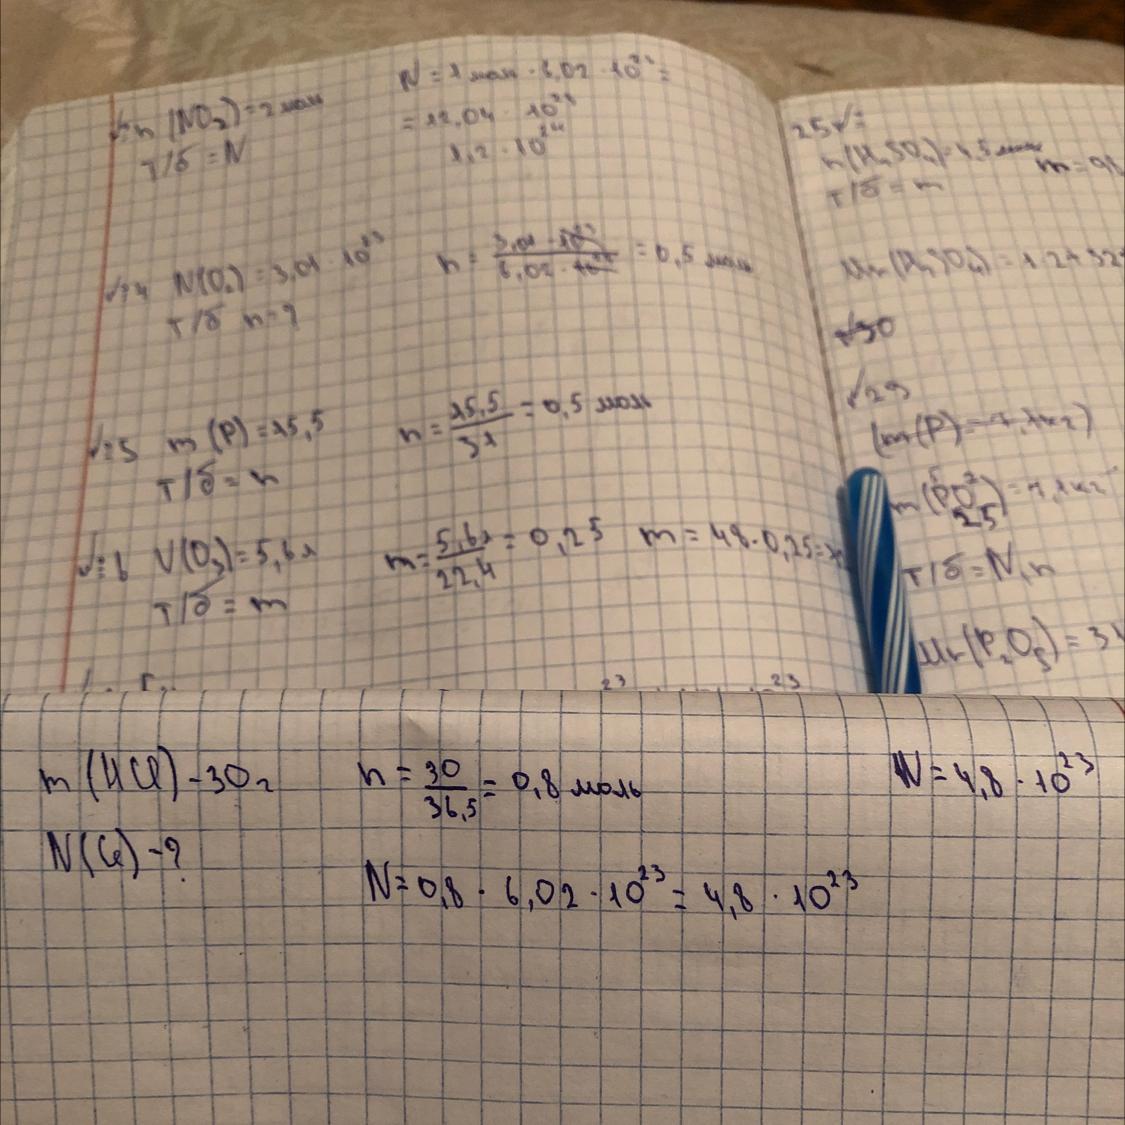 n (NO₂) = 2 моль
т/б = N
N = 2 моль · 6,02 · 10²³ =
= 12,04 · 10²³
1,2 · 10²⁴
√=4 N(O₂) = 3,01 10²³
т/б n=?
n = 3,01 · 10²³ / 6,02 · 10²³ = 0,5 моль
√=5 m (P) = 15,5
т/б = n
n = 15,5 / 31 = 0,5 моль
√=6 V(O₃) = 5,6л
т/б = m
m = 5,6л / 22,4 = 0,25 m = 48 · 0,25 =
25√=
n(H₂SO₄) = 1,5 моль
т/б = m
Mr(H₂SO₄) = 1·2+32+
√30
√29
(m(P) = 7,1кг)
m(PO) = 7,1кг
25
т/б = N, n
Mr(P₂O₅) = 31
m (HCl) - 30г
N(Cl) - ?
n = 30 / 36,5 = 0,8 моль
N = 0,8 · 6,02 · 10²³ = 4,8 · 10²³
N = 4,8 · 10²³